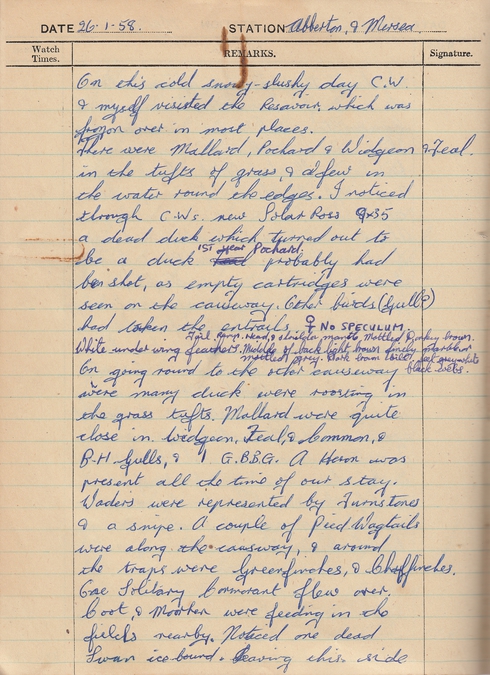 DATE 26-1-58. STATION Abberton, & Mersea
Watch Times. REMARKS. Signature.
On this cold snowy-slushy day C.W.
& myself visited the Resavour, which was
frozon over in most places.
There were Mallard, Pochard & Widgeon & Teal.
in the tufts of grass, & a few in
the water round the edges. I noticed
through C.W's. new Solar Ross 9x35
a dead duck which turned out to
be a duck 1ST year Pochard. probably had
ben shot, as empty cartridges were
seen on the causway. Other birds (Gulls?)
had taken the entrails. ♀ NO SPECULUM,
Tail, rump, head, & mantle Mottled Donkey brown.
White under wing feathers. Middle of back light brown finely
mottled grey. Dark brown
black webs.
On going round to the other causeway
were many duck were roosting in
the grass tufts. Mallard were quite
close in. Widgeon, Teal, & Common, &
B.H Gulls, & 1 G.B.B.G. A Heron was
present all the time of our stay.
Waders were represented by Turnstones
& a snipe. A couple of Pied Wagtails
were along the causway, & around
the traps were Greenfinches, & Chaffinches.
One Solitary Cormorant flew over.
Coot, & Moorhen were feeding in the
fields nearby. Noticed one dead
Swan ice bound. Leaving this side